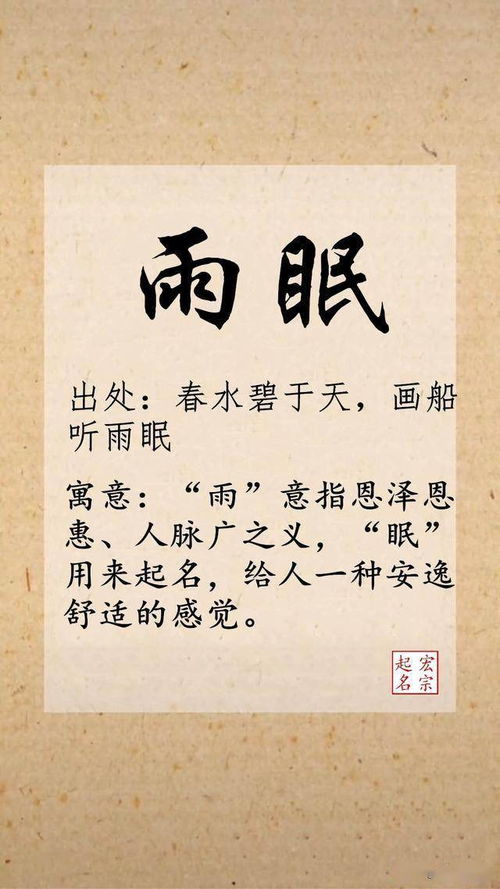 雨眠
出处：春水碧于天，画船
听雨眠
寓意：“雨”意指恩泽恩
惠、人脉广之义，“眠”
用来起名，给人一种安逸
舒适的感觉。
宏宗
起名